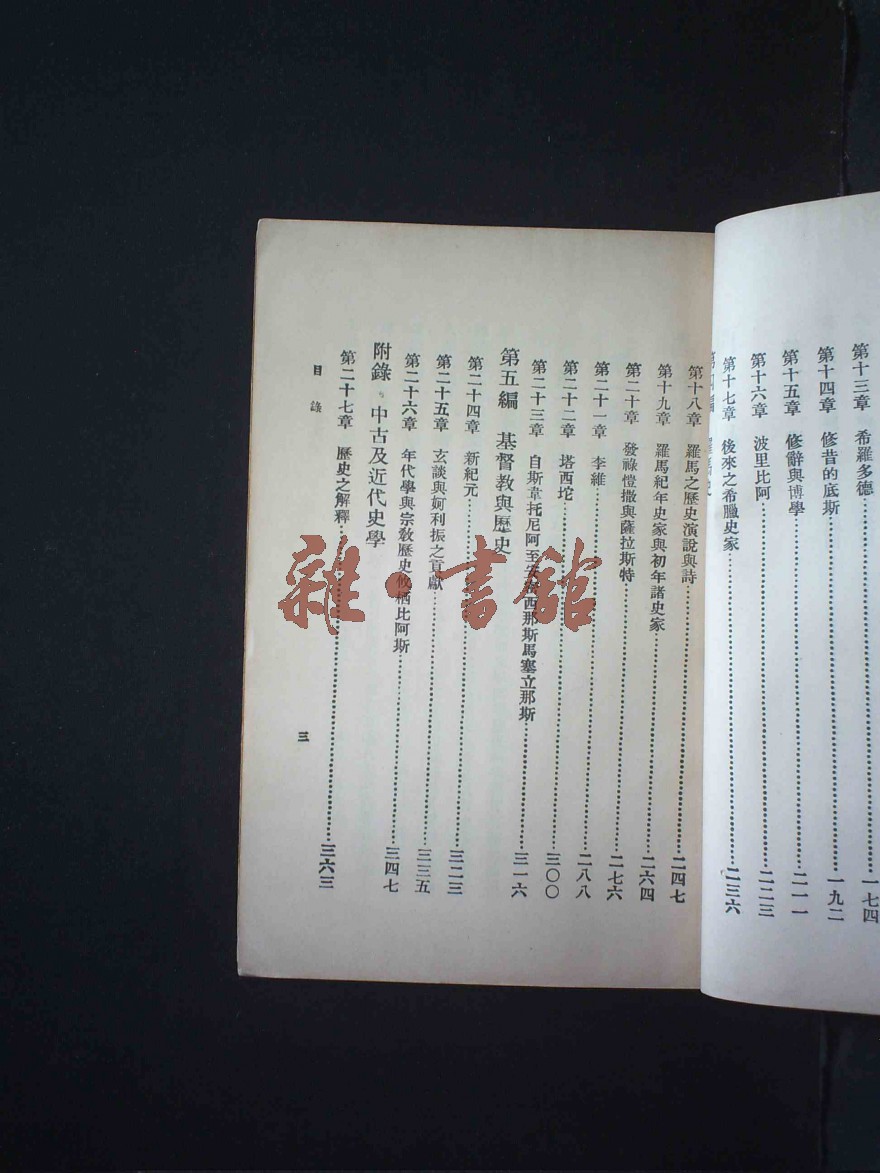 第十三章　希羅多德……一七四
第十四章　修昔的底斯……一九二
第十五章　修辭與博學……二一一
第十六章　波里比阿……二二三
第十七章　後來之希臘史家……二三六
第十八章　羅馬之歷史演說與詩……二四七
第十九章　羅馬紀年史家與初年諸史家……二六四
第二十章　發祿愷撒與薩拉斯特……二七六
第二十一章　李維……二八八
第二十二章　塔西坨……三〇〇
第二十三章　自斯韋托尼阿至安密西那斯馬塞立那斯……三一六
第五編　基督教與歷史
第二十四章　新紀元……三二三
第二十五章　玄談與妸利振之貢獻……三三五
第二十六章　年代學與宗敎歷史攸栖比阿斯……三四七
附錄　中古及近代史學
第二十七章　歷史之解釋……三六三
目錄
三
雜·書館